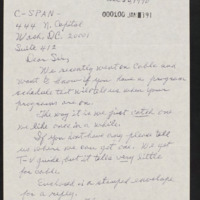 000106 JAN 1991
C-SPAN
444 N. Capitol
Wash, D.C. 20001
Suite 412
Dear Sirs,
We recently went on Cable and
want to know if you have a program
schedule that will tell us when your
programs are on.
The way it is we just catch one
we like once in a while.
If you do have any please tell
us where we can get one. We get
T-V guide, but it tells very little
for cable.
Enclosed is a stamped envelope
for a reply.